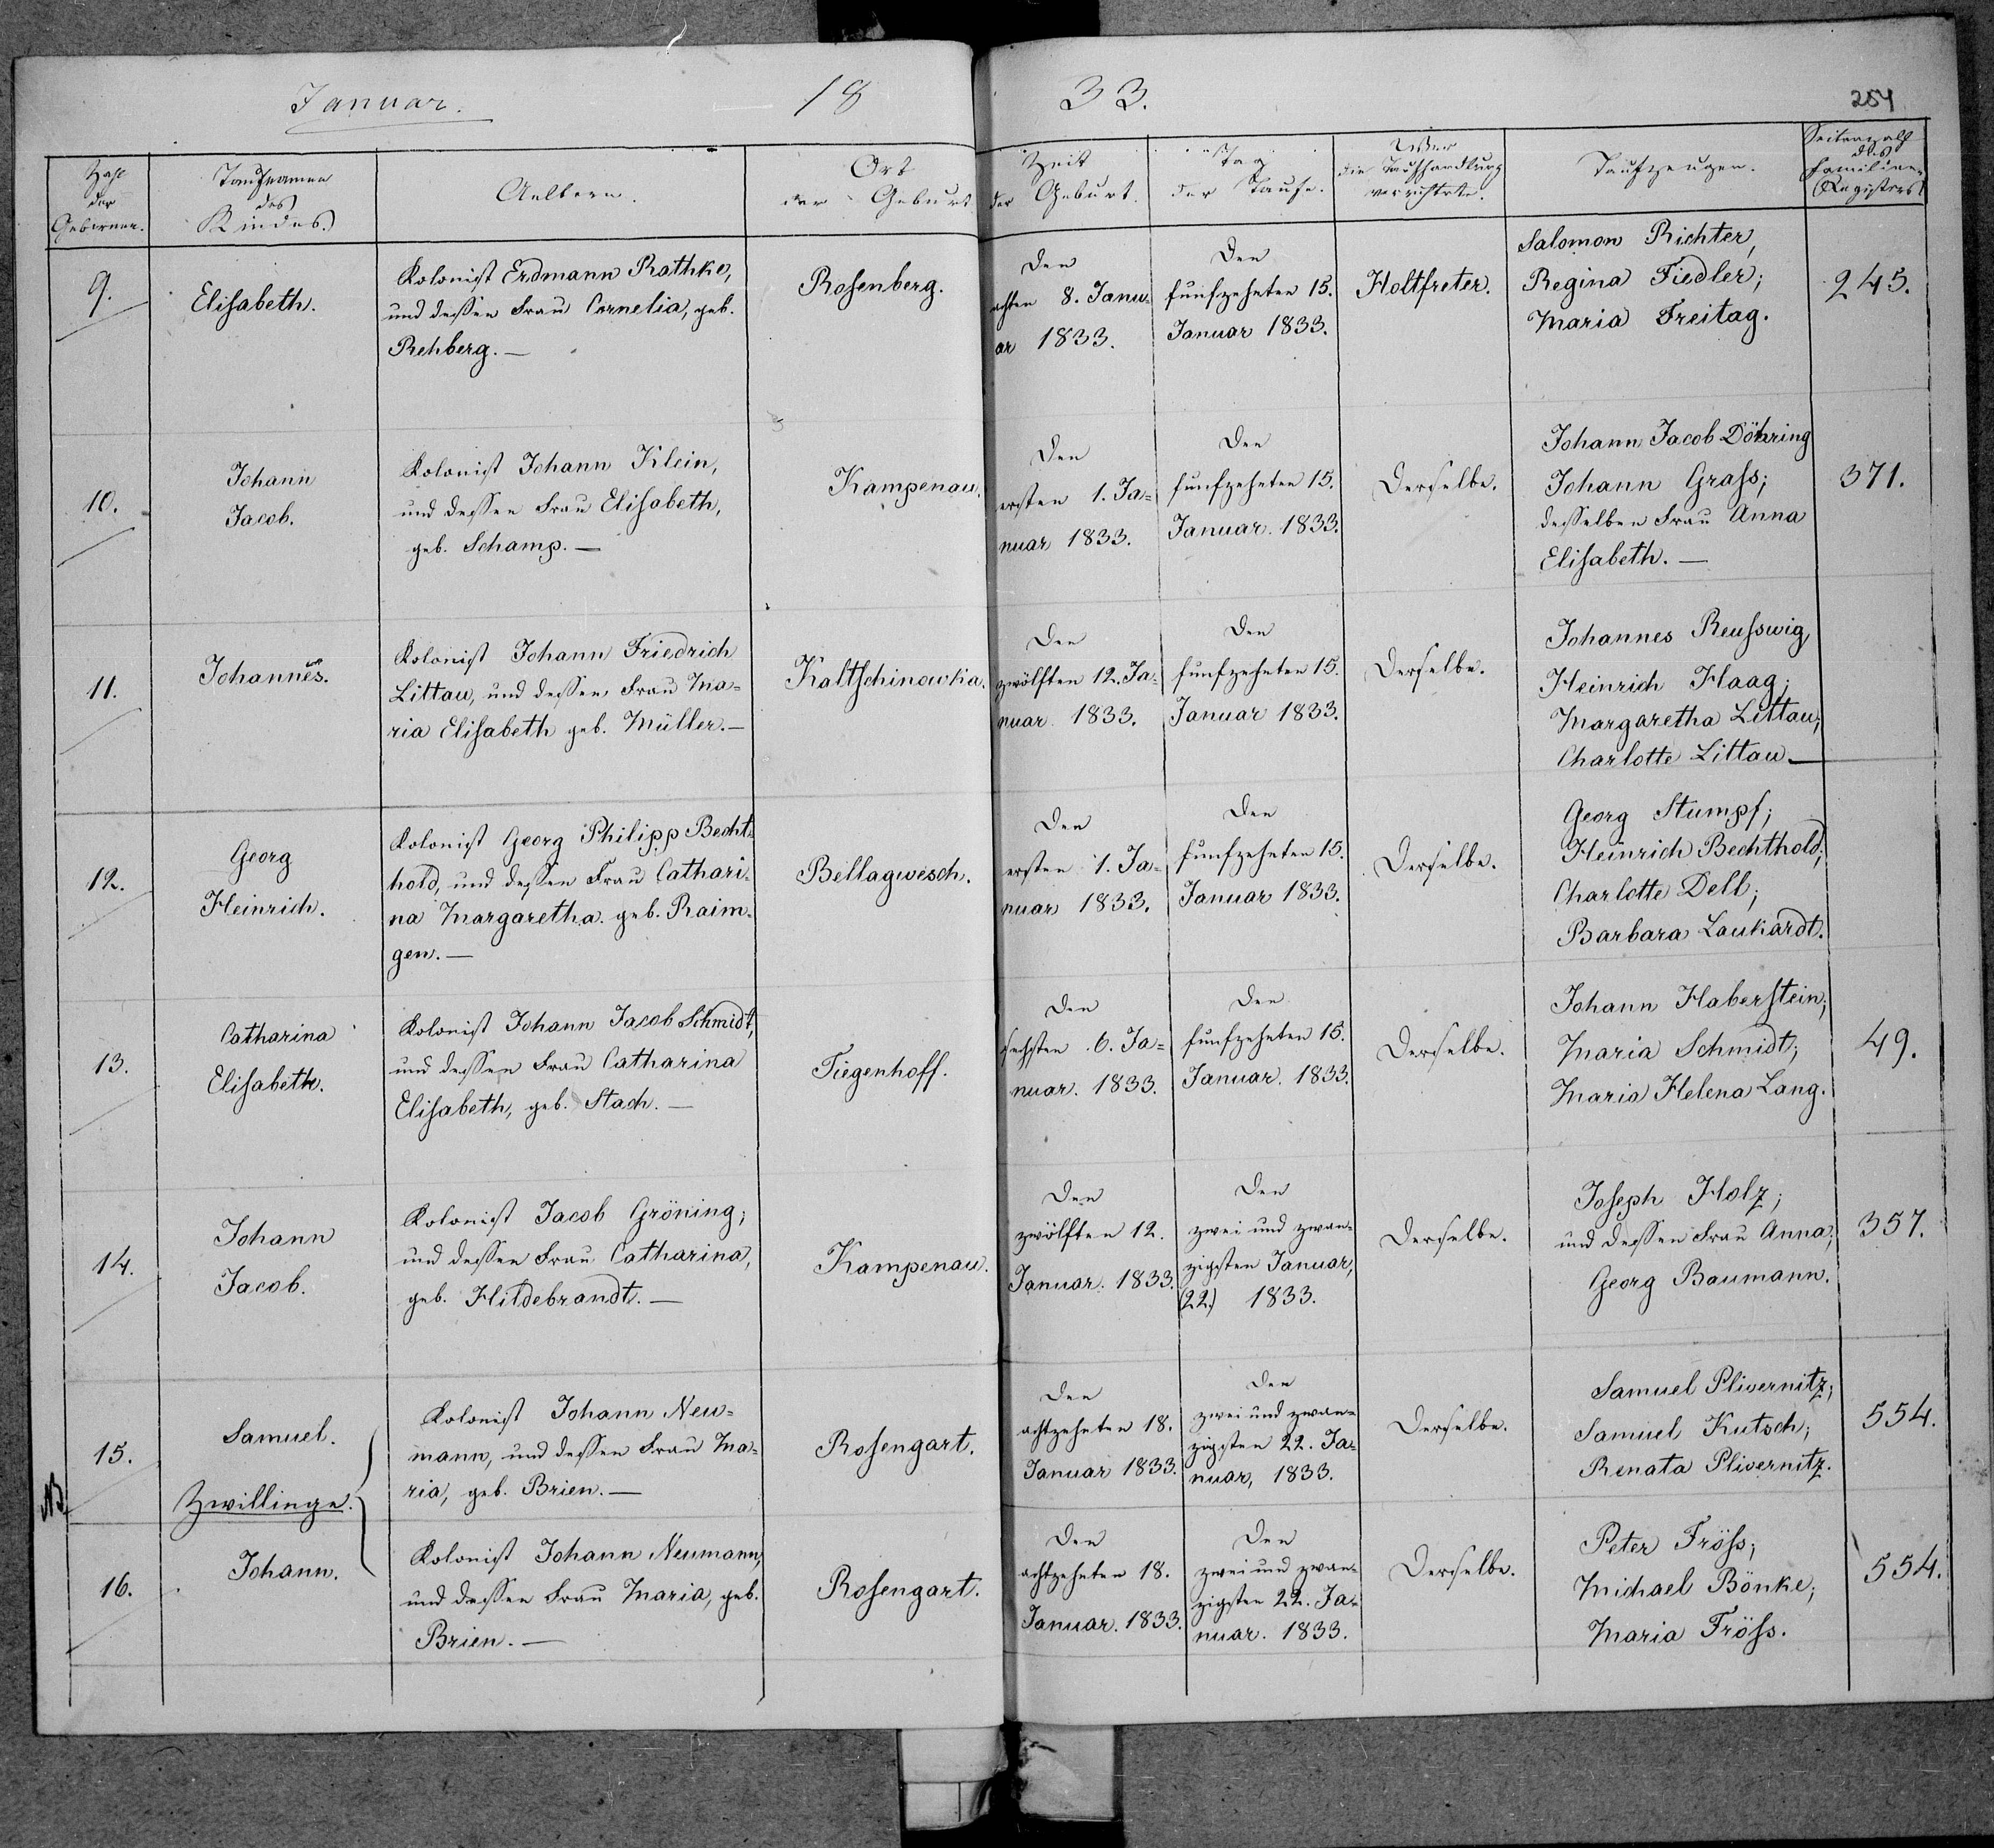 Januar. 18 33. 254
Zahl
der
Gebornen.
Taufnamen
des
Kindes.
Aeltern.
Ort
der Geburt
Zeit
der Geburt.
Tag
der Taufe.
Wer
die Taufhandlung
verrichtete.
Taufzeugen.
Seitenzahl
des
Familien-
Registers.
9.
Elisabeth.
Kolonist Erdmann Rathke,
und dessen Frau Cornelia, geb.
Rehberg. —
Rosenberg.
Den
achten 8. Janu-
ar 1833.
Den
funfzehnten 15.
Januar 1833.
Holtfreter.
Salomon Richter,
Regina Fiedler;
Maria Freitag.
245.
10.
Johann
Jacob.
Kolonist Johann Klein,
und dessen Frau Elisabeth,
geb. Schamp. —
Kampenau.
Den
ersten 1. Ja-
nuar 1833.
Den
funfzehnten 15.
Januar. 1833.
Derselbe.
Johann Jacob Döhring
Johann Grass;
desselben Frau Anna
Elisabeth. —
371.
11.
Johannes.
Kolonist Johann Friedrich
Littau, und dessen Frau Ma-
ria Elisabeth geb. Müller. —
Kaltschinowka.
Den
zwölften 12. Ja-
nuar 1833.
Den
funfzehnten 15.
Januar 1833.
Derselbe.
Johannes Reusswig,
Heinrich Haag;
Margaretha Littau;
Charlotte Littau —
12.
Georg
Heinrich.
Kolonist Georg Philipp Becht-
hold, und dessen Frau Cathari-
na Margaretha. geb. Raim-
gen. —
Bellagwesch.
Den
ersten 1. Ja-
nuar 1833.
Den
funfzehnten 15.
Januar 1833.
Derselbe.
Georg Stumpf;
Heinrich Bechthold;
Charlotte Dell;
Barbara Laukardt.
13.
Catharina
Elisabeth.
Kolonist Johann Jacob Schmidt,
und dessen Frau Catharina
Elisabeth, geb. Stach. —
Tiegenhoff.
Den
sechsten 6. Ja-
nuar. 1833.
Den
funfzehnten 15.
Januar. 1833.
Derselbe.
Johann Haberstein;
Maria Schmidt;
Maria Helena Lang.
49.
14.
Johann
Jacob.
Kolonist Jacob Gröning;
und dessen Frau Catharina,
geb. Hildebrandt. —
Kampenau.
Den
zwölften 12.
Januar. 1833.
Den
zwei und zwan-
zigsten Januar,
(22.) 1833.
Derselbe.
Joseph Holz;
und dessen Frau Anna;
Georg Baumann.
357.
15.
Samuel.
Kolonist Johann Neu-
mann, und dessen Frau Ma-
ria, geb. Brien. —
Rosengart.
Den
achtzehnten 18.
Januar 1833.
Den
zwei und zwan-
zigsten 22. Ja-
nuar, 1833.
Derselbe.
Samuel Plivernitz;
Samuel Kutsch;
Renata Plivernitz.
554.
NB
Zwillinge.
16.
Johann.
Kolonist Johann Neumann,
und dessen Frau Maria, geb.
Brien. —
Rosengart.
Den
achtzehnten 18.
Januar. 1833.
Den
zwei und zwan-
zigsten 22. Ja-
nuar. 1833.
Derselbe.
Peter Fröss;
Michael Bönke;
Maria Fröss.
554.